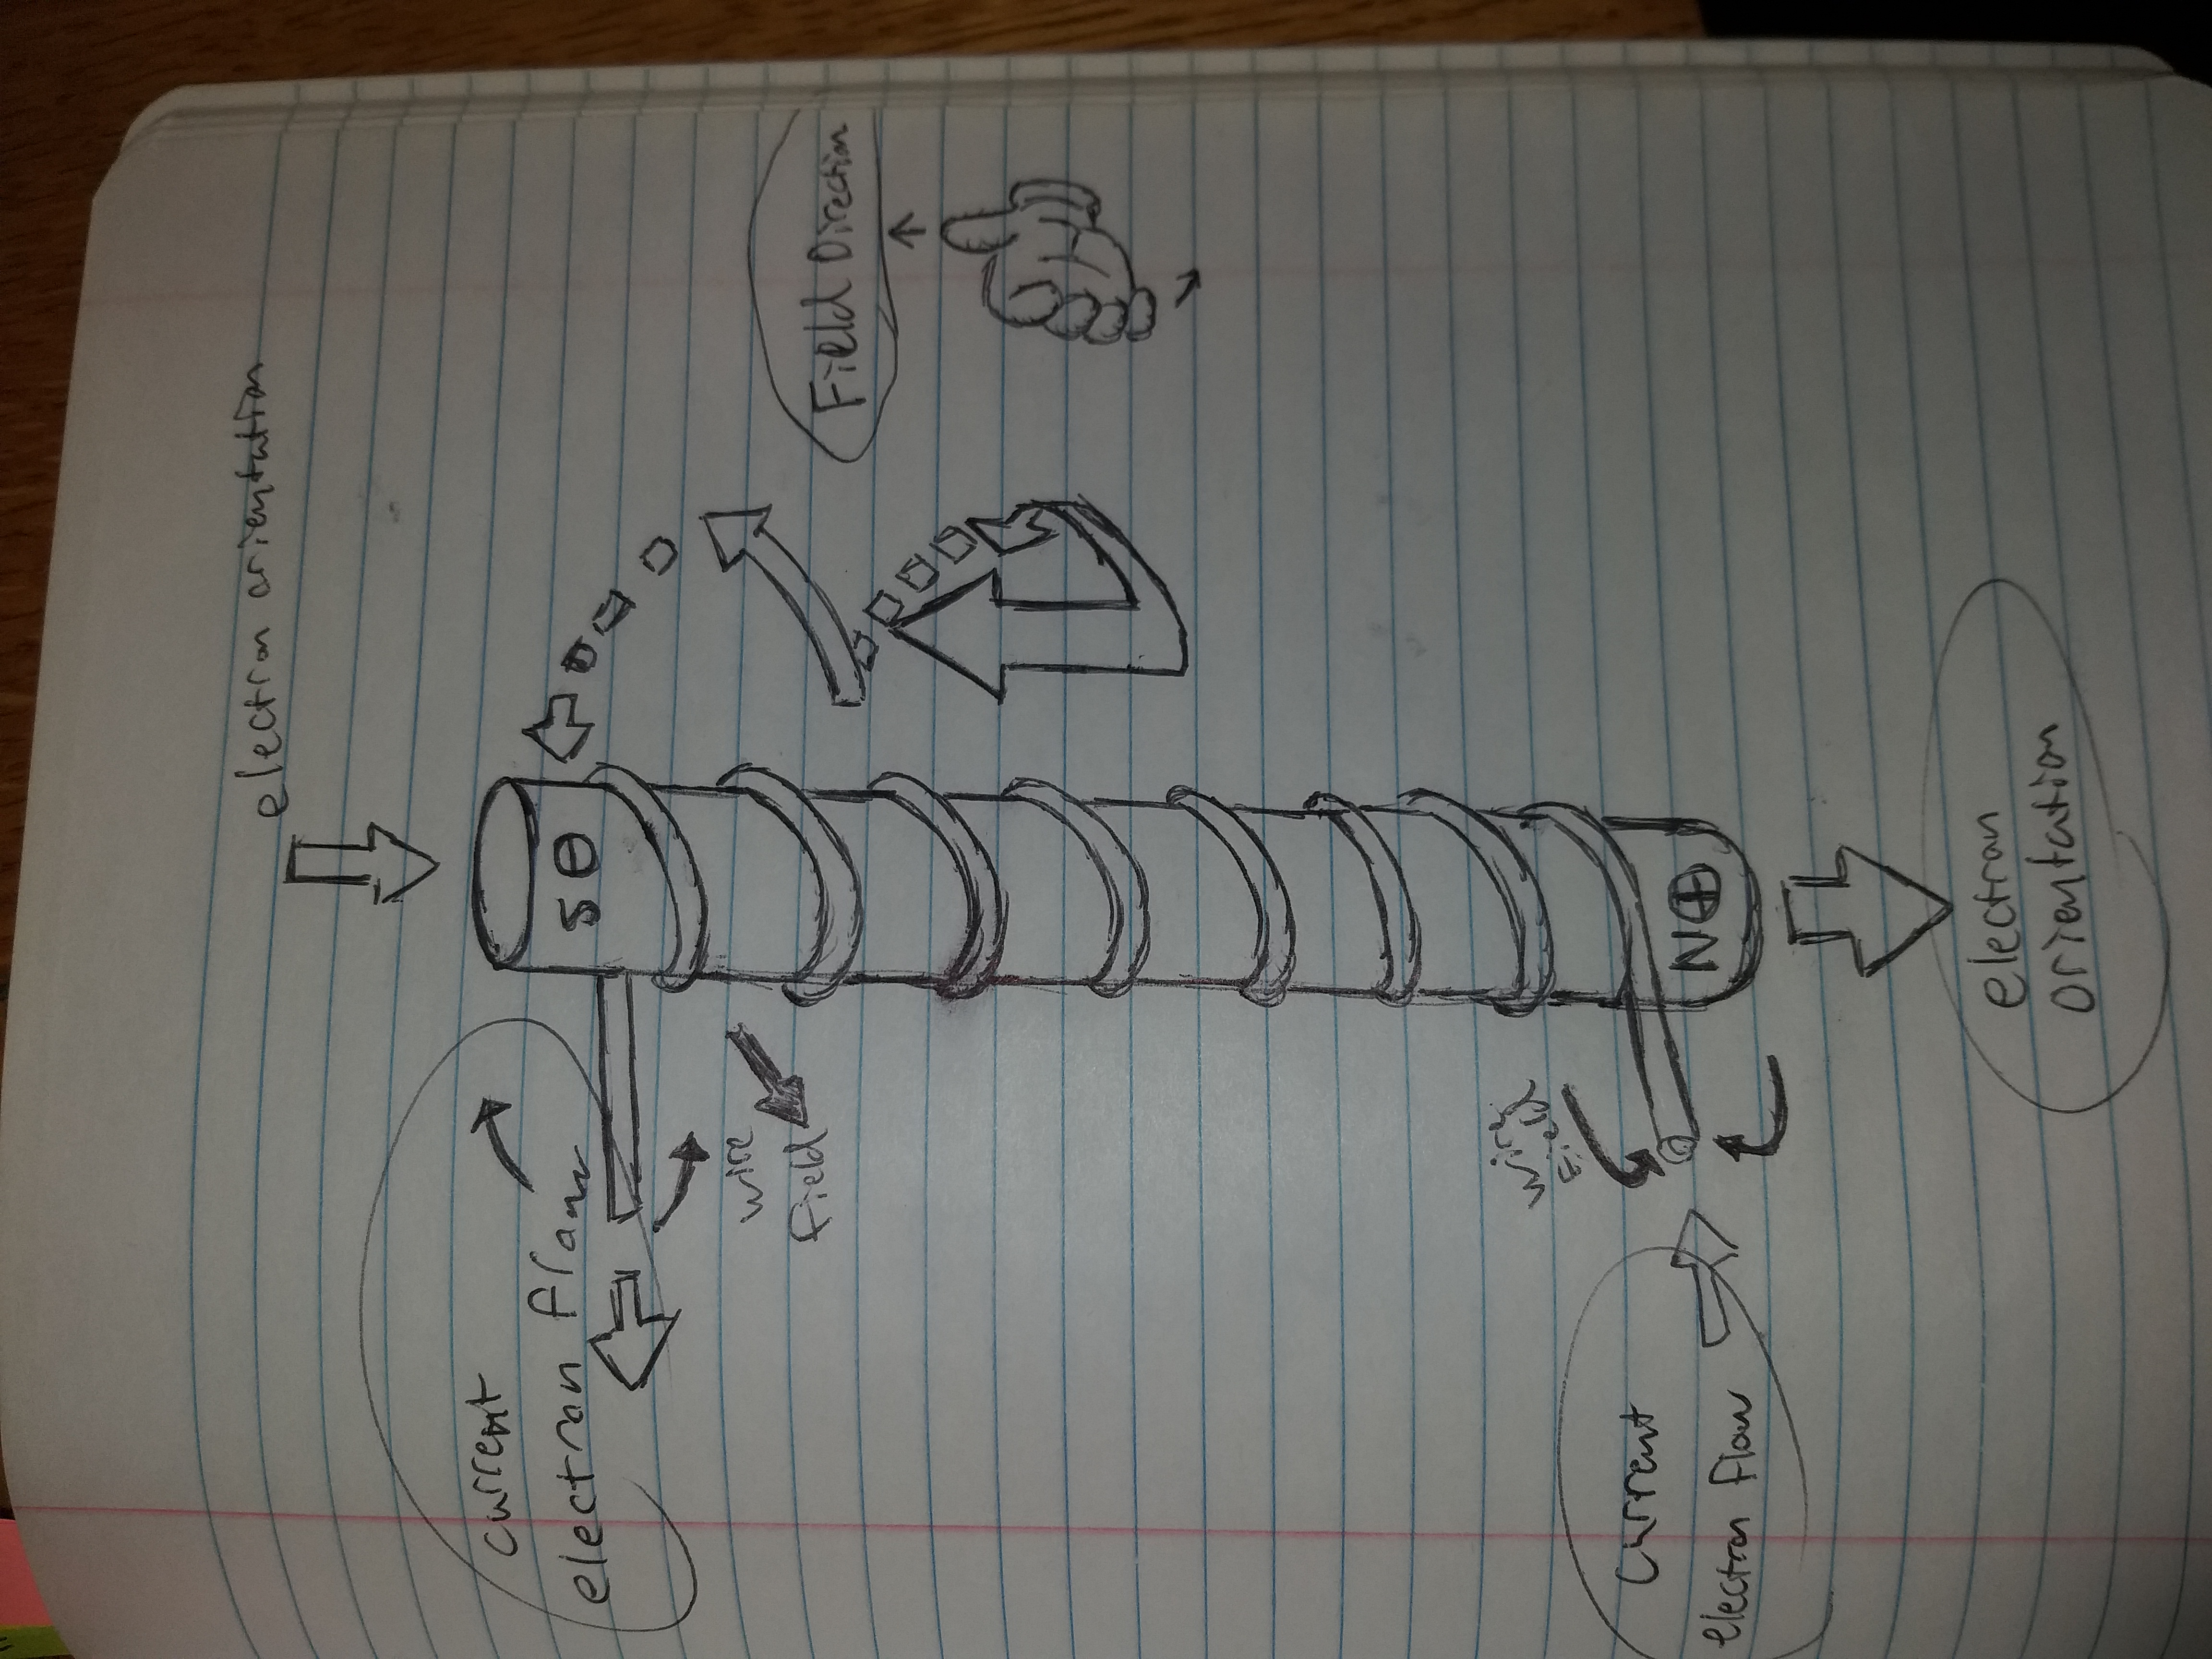 electron orientation
current
electron flow
S ⊖
wire
field
Field Direction
wire
Field
Current
electron flow
N ⊕
electron
orientation